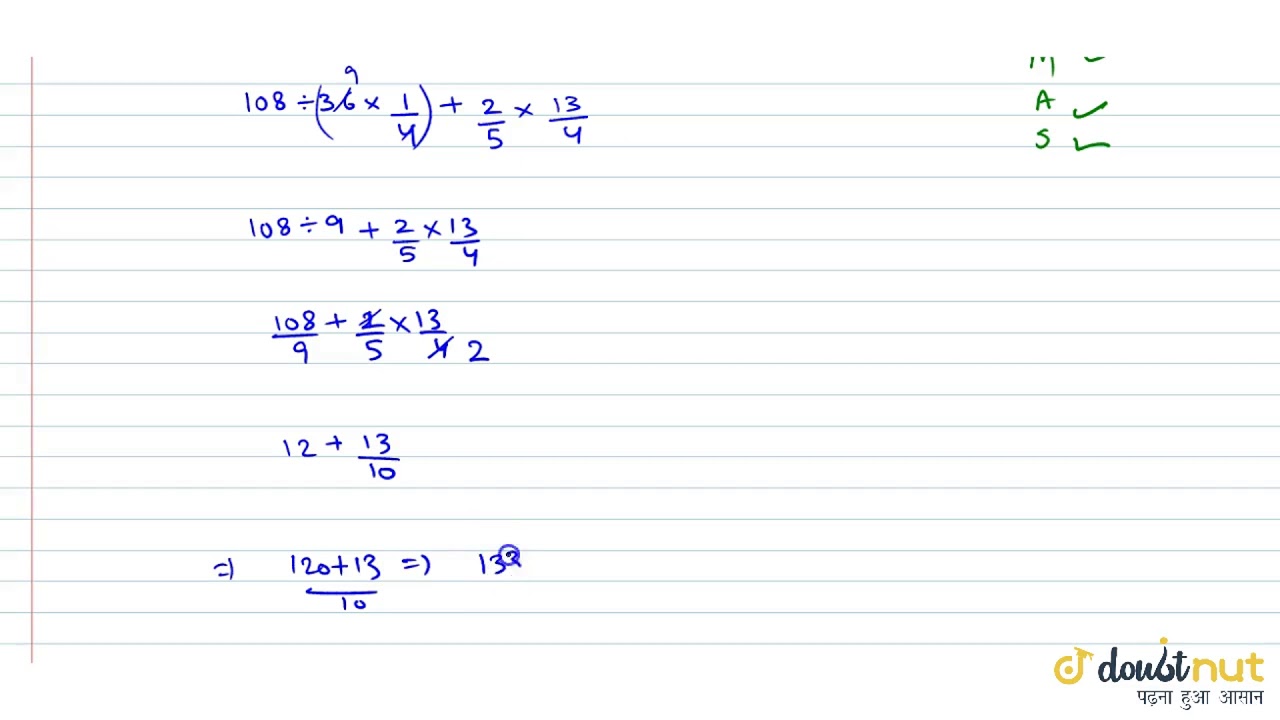 108 ÷ (36 × 1/4) + 2/5 × 13/4
9
M ✓
A ✓
S ✓
108 ÷ 9 + 2/5 × 13/4
108/9 + 2/5 × 13/4 2
12 + 13/10
=) 120+13/10 =) 133
doubtnut
पढ़ना हुआ आसान